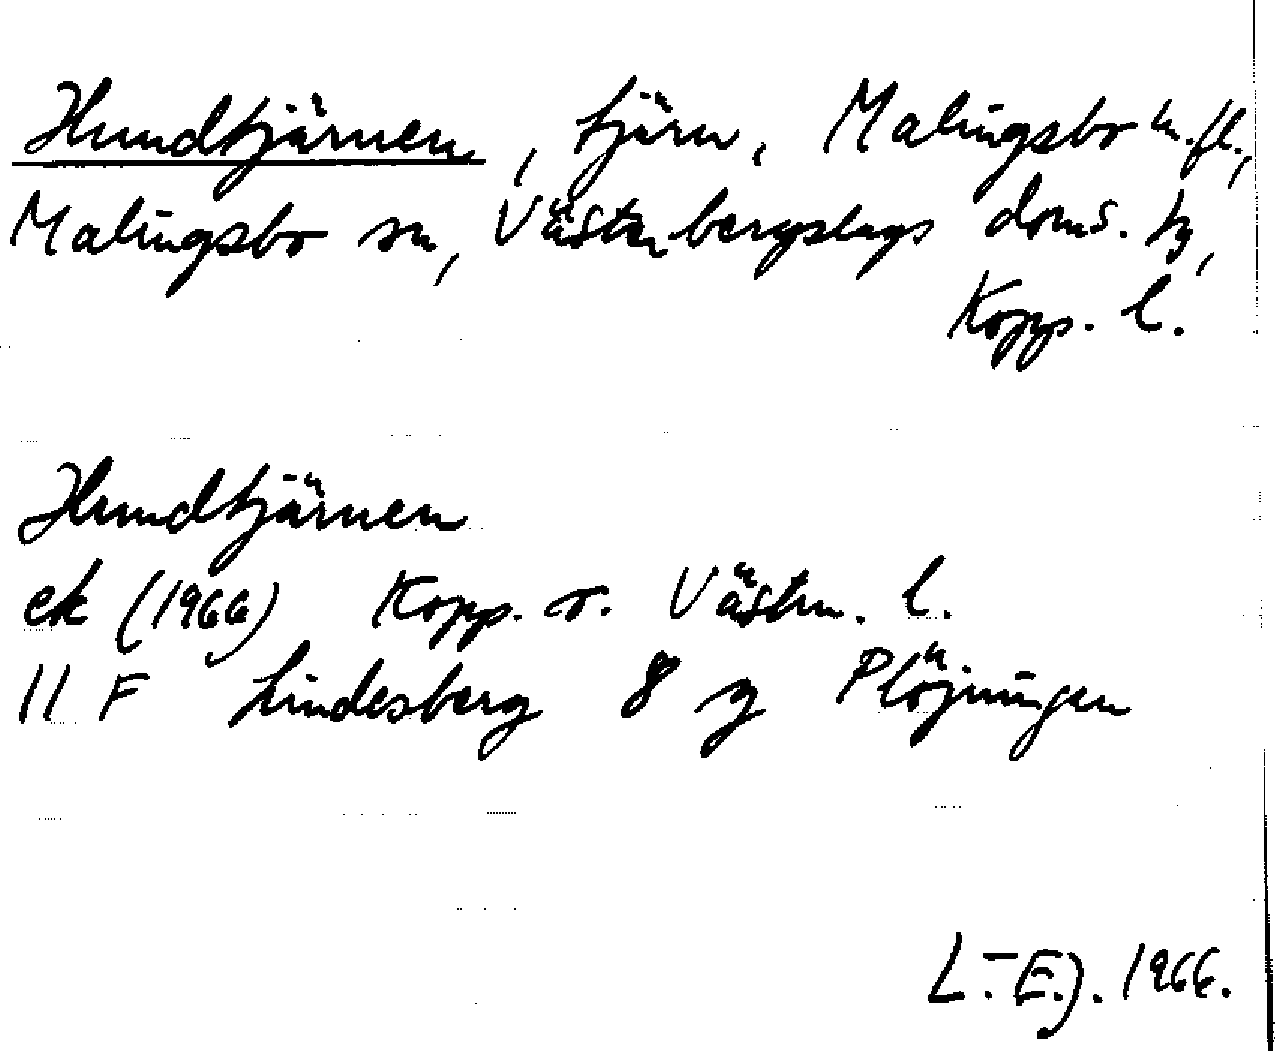 Hundtjärnen, tjärn, Malingsbo m.fl.,
Malingsbo sn, Västerbergslags doms. tg,
Kopp. l.
Hundtjärnen
ek (1966) Kopp. o. Västm. l.
11 F Lindesberg 8 g Plöjningen
L.-E.J. 1966.